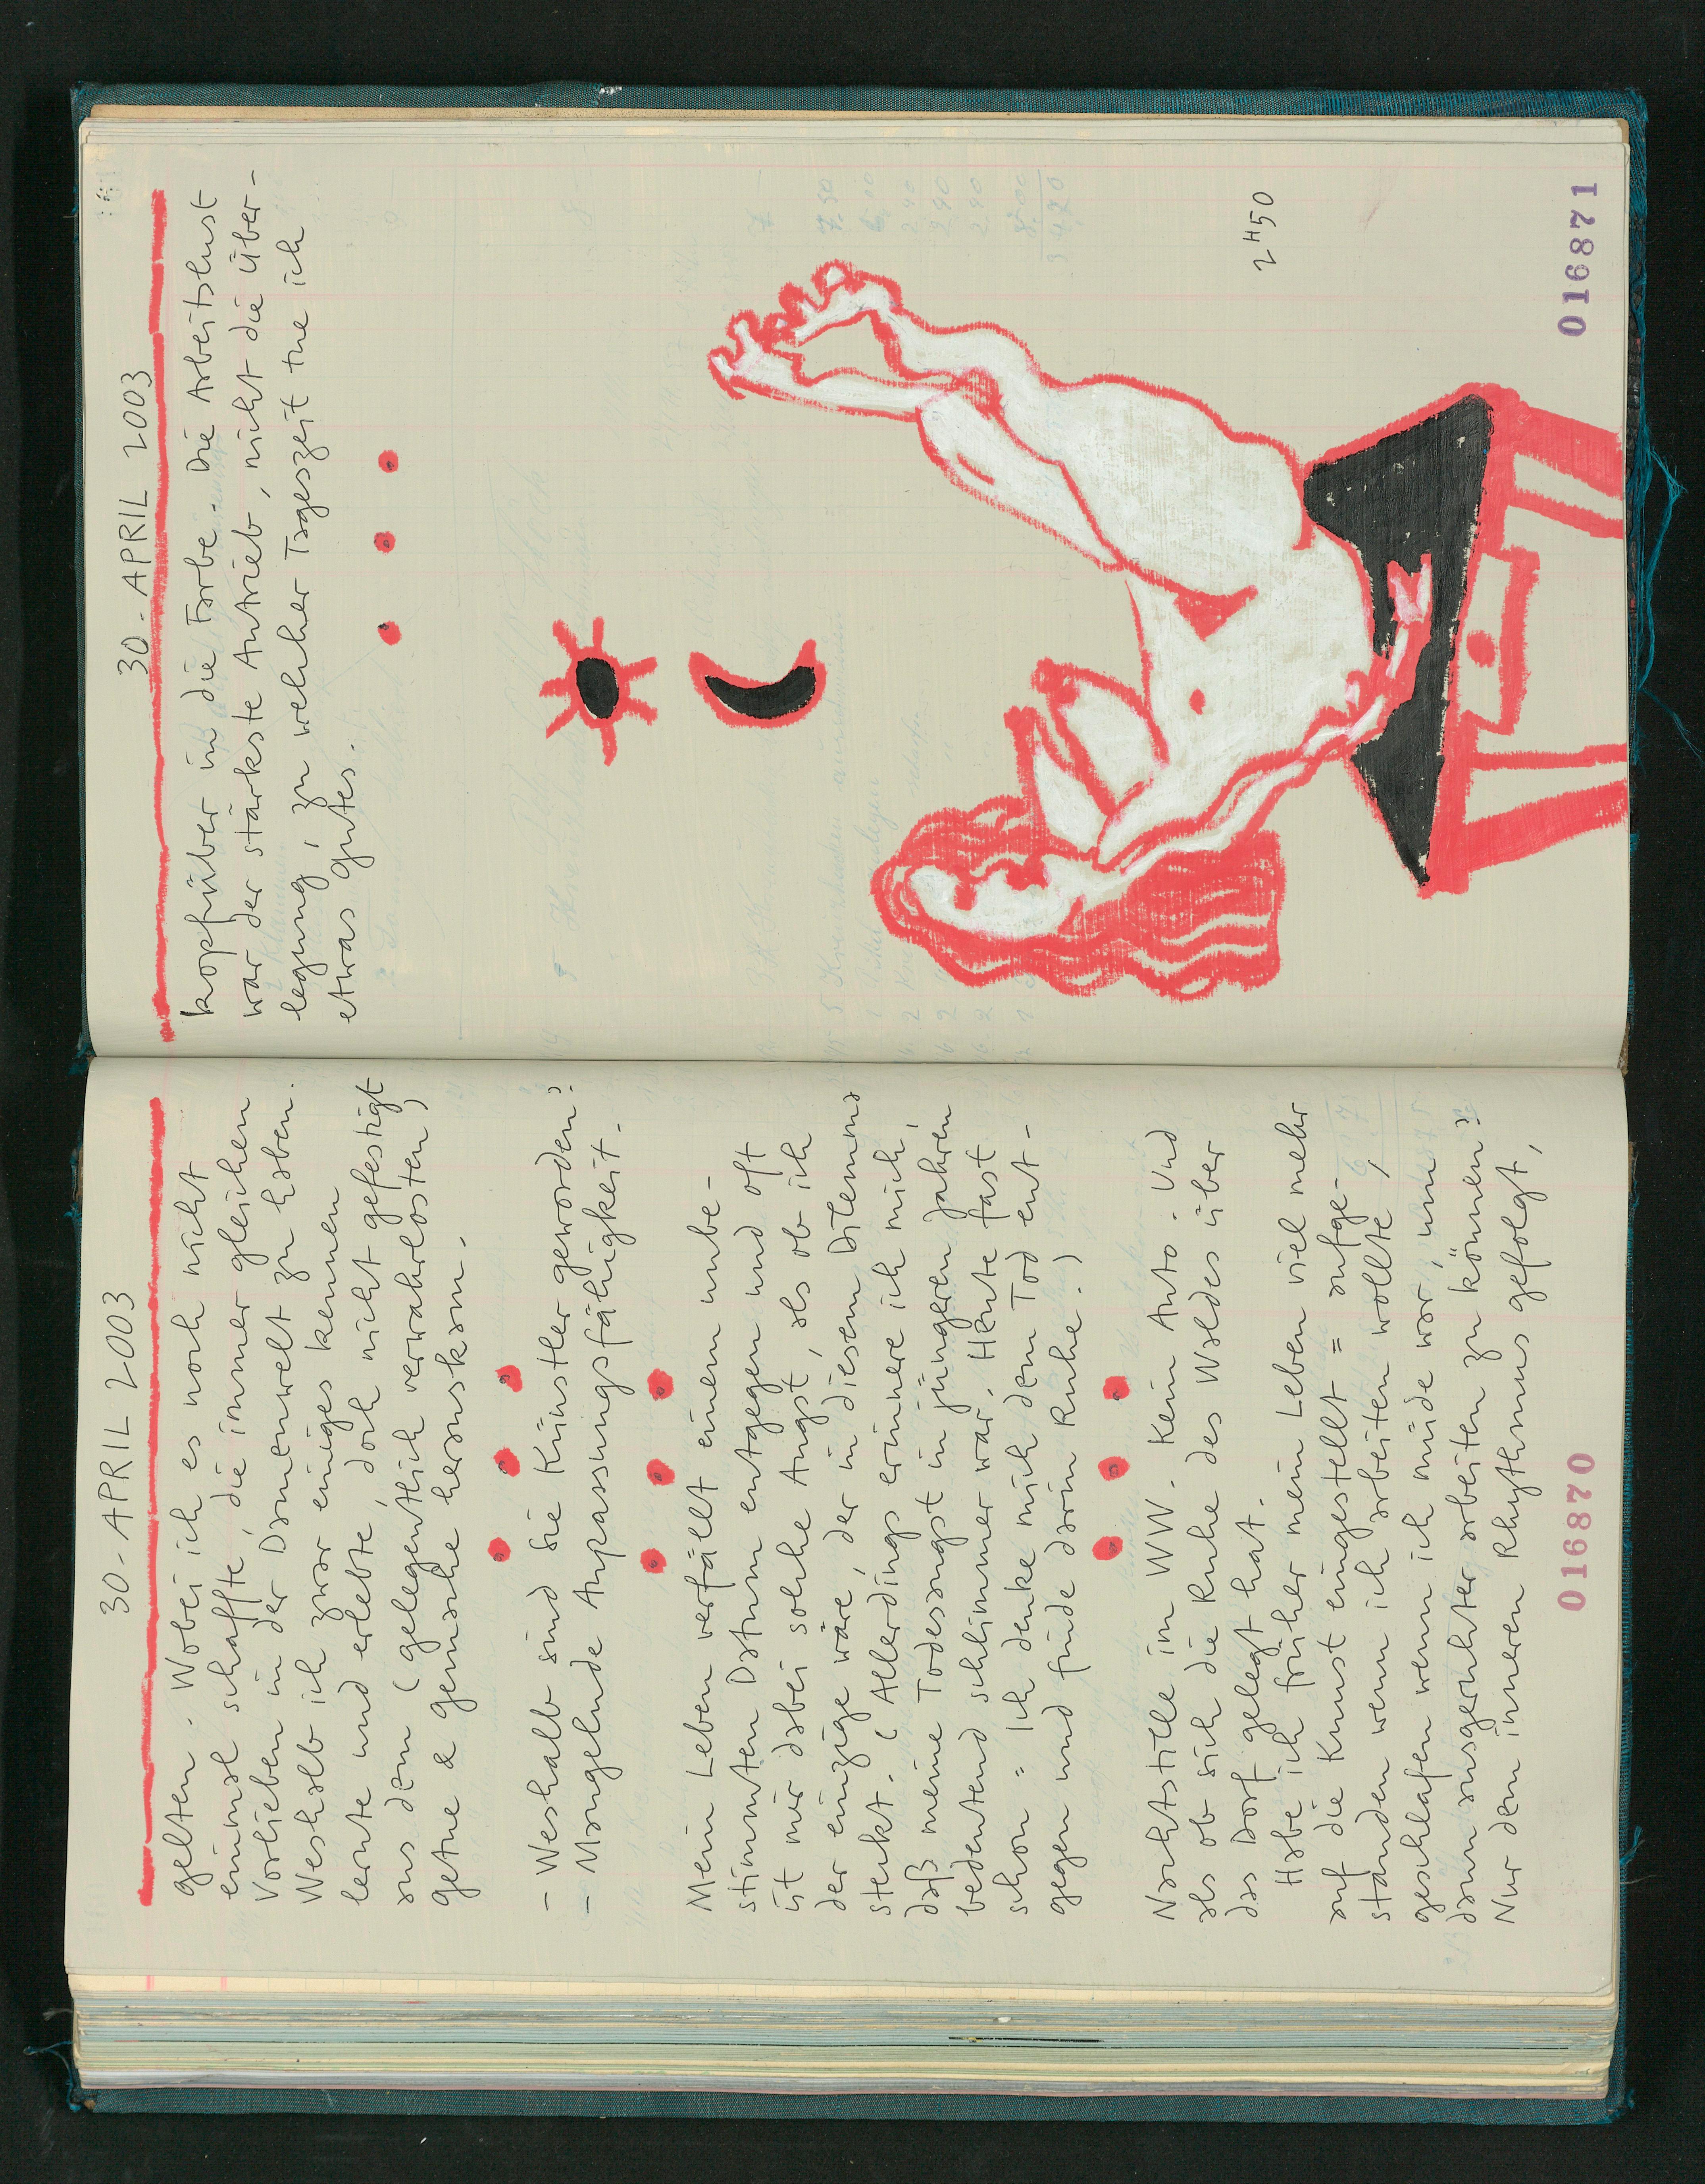 30-APRIL 2003
gelten. Wobei ich es noch nicht
einmal schaffte, die immer gleichen
Vorlieben in der Damenwelt zu haben.
Weshalb ich zwar einiges kennen
lernte und erlebte, doch nicht gefestigt
aus dem (gelegentlich verwahrlosten)
getue & gemache herauskam.
- Weshalb sind Sie Künstler geworden?
- Mangelnde Anpassungsfähigkeit.
Mein Leben verfällt einem unbe-
stimmten Datum entgegen und oft
ist mir dabei solche Angst, als ob ich
der einzige wäre, der in diesem Dilemma
steckt. (Allerdings erinnere ich mich,
daß meine Todesangst in jüngeren Jahren
bedeutend schlimmer war. Heute fast
schon = Ich denke mich dem Tod ent-
gegen und finde darin Ruhe.)
Nachtstille im WW. Kein Auto. Und
als ob sich die Ruhe des Waldes über
das Dorf gelegt hat.
Habe ich früher mein Leben viel mehr
auf die Kunst eingestellt = aufge-
standen wenn ich arbeiten wollte,
geschlafen wenn ich müde war, um
dann ausgeruhter arbeiten zu können?
Nur dem inneren Rhythmus gefolgt,
016870
30-APRIL 2003
kopfüber in die Farbe. Die Arbeitslust
war der stärkste Antrieb, nicht die über-
legung, zu welcher Tageszeit tue ich
etwas gutes.
2H50
016871